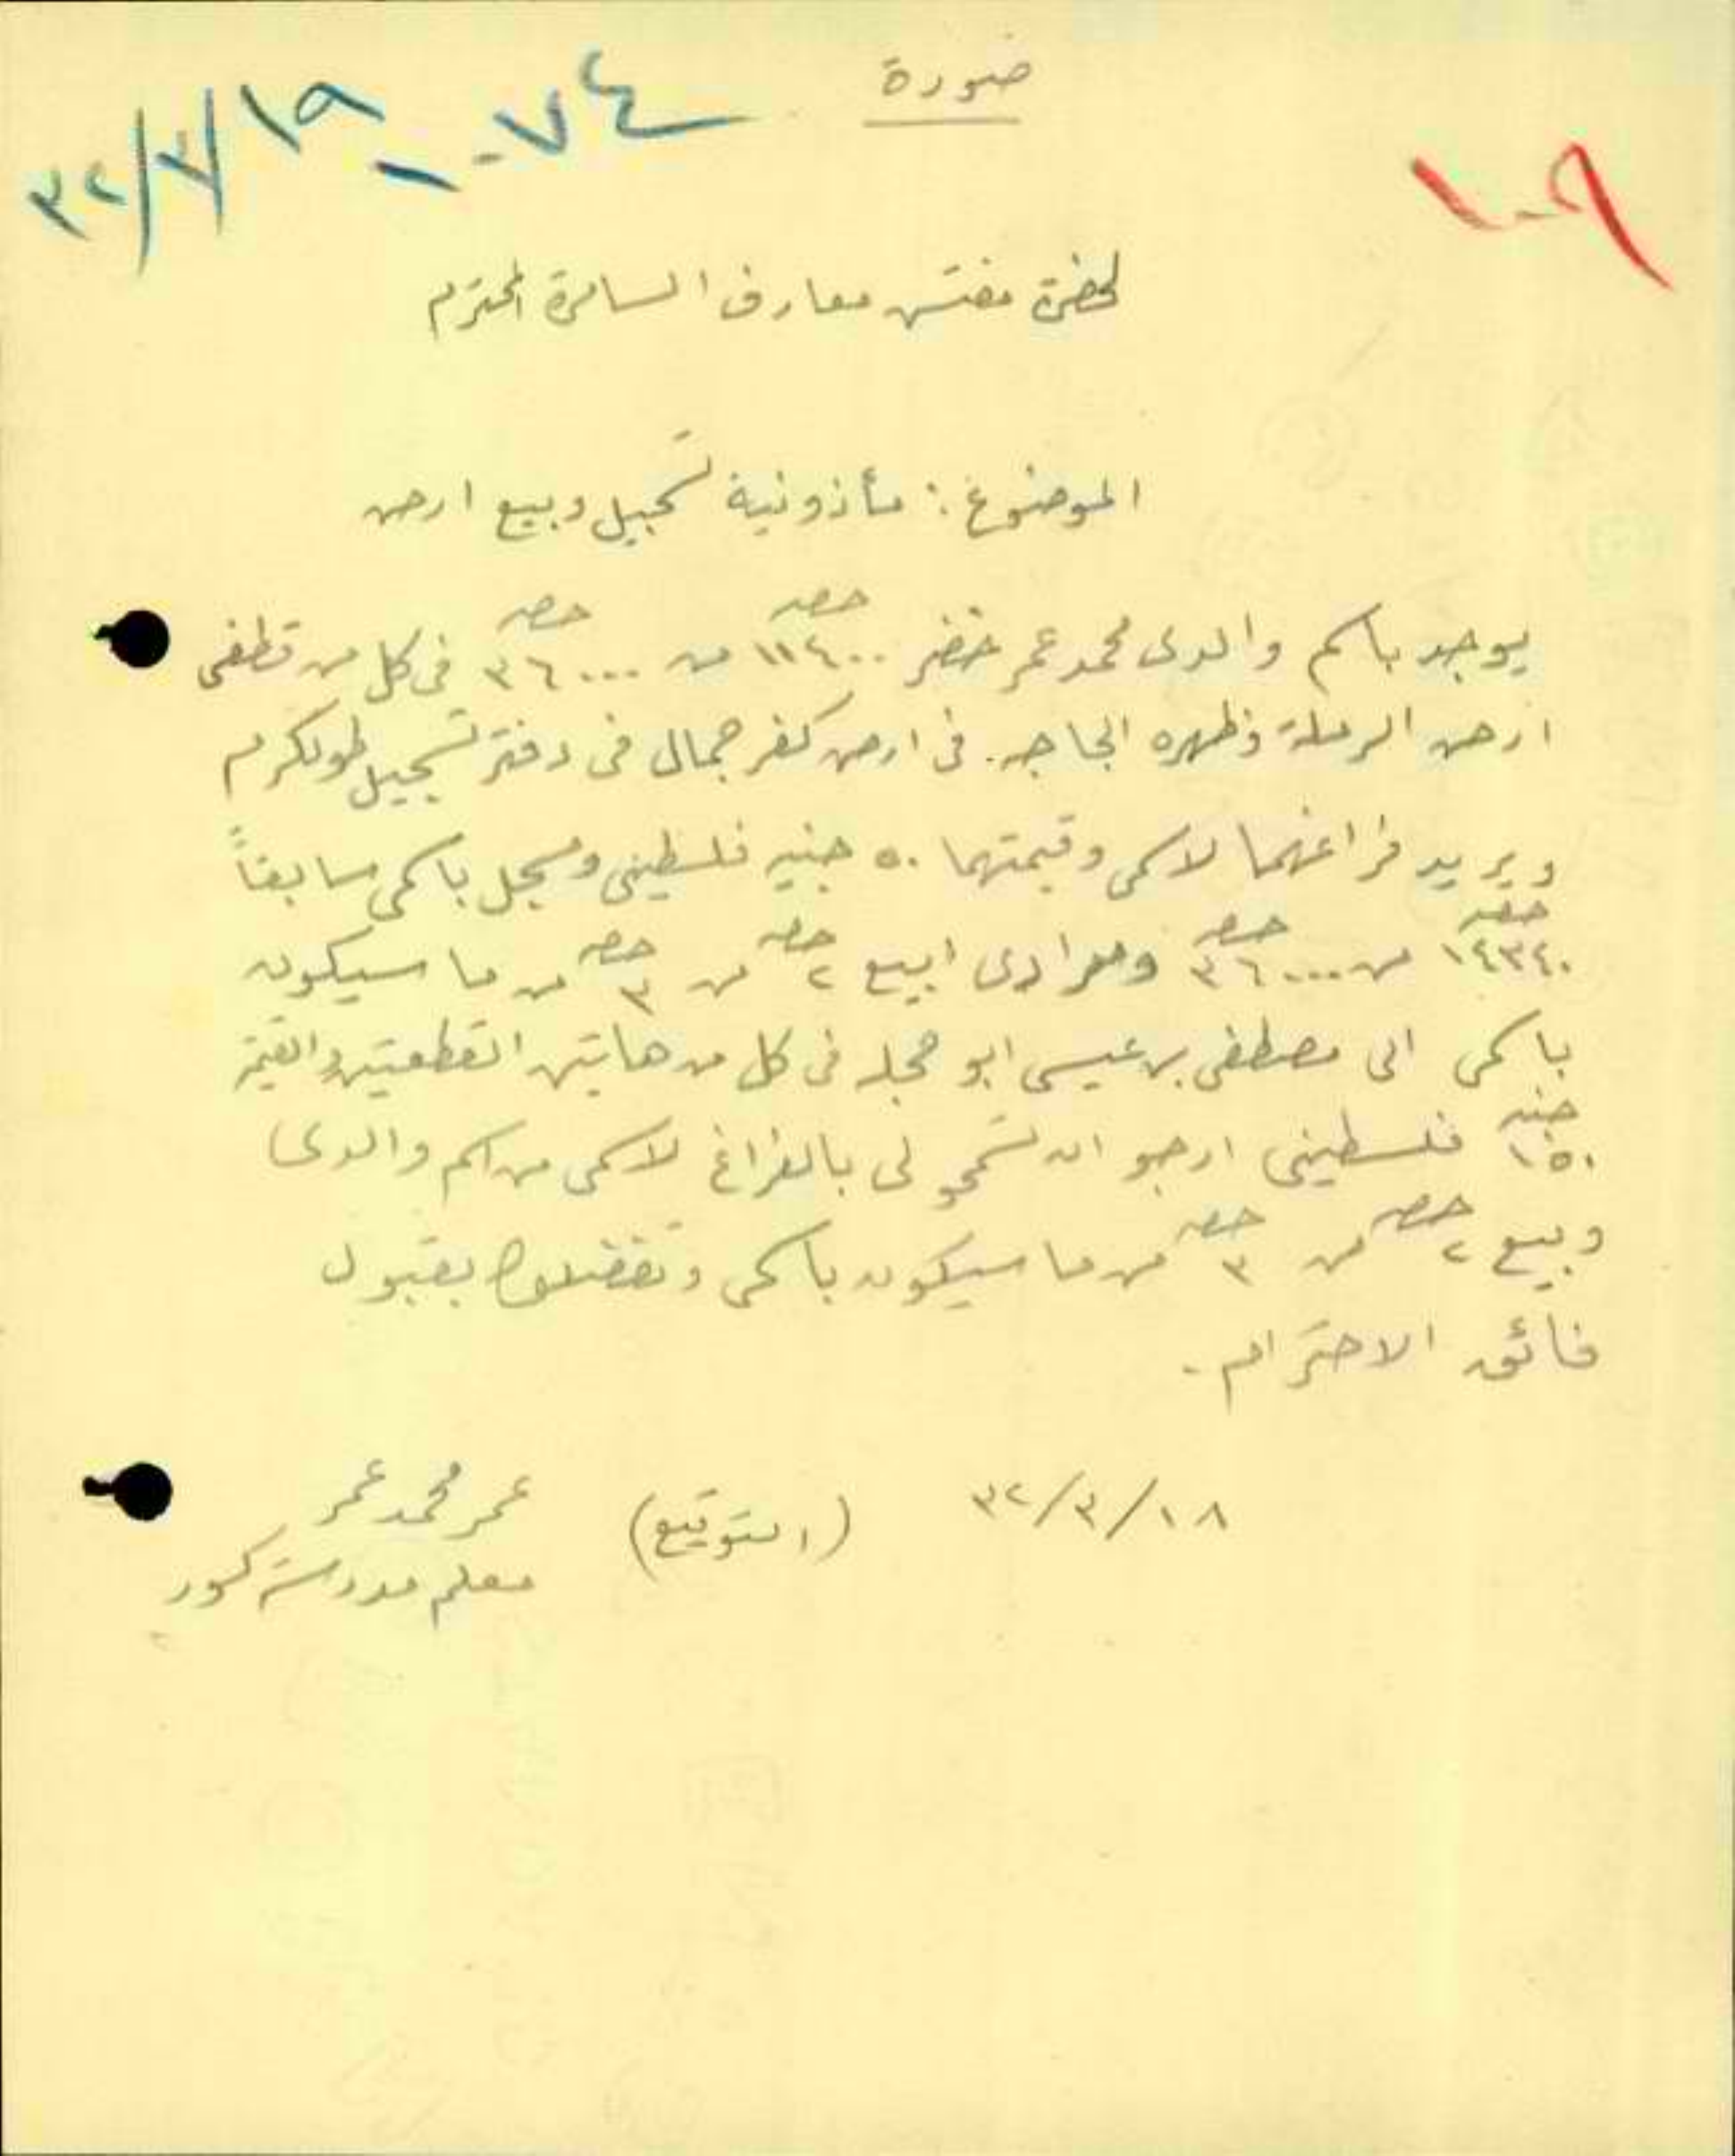 صورة
٧٤ - ١٩/٣/٣٢
١٠٩
لحضرة مفتش معارف السامرة المحترم
الموضوع : مأذونية تسجيل وبيع ارض
يوجد باسم والدي محمد عمر خضر ١١٤٠٠ حصه من ٣٦٠٠٠ حصه في كل من قطعتي
ارض الرملة وظهره في ارض كفر جمال في دفتر تسجيل طولكرم
ويريد فراغهما لاسمي وقيمتهما ٥٠ جنيه فلسطيني ومسجل باسمي سابقاً
١٤٣٤٠ حصه من ٣٦٠٠٠ حصه ومرادي ابيع ٢ حصه من ٣ حصه من ما سيكون
باسمي الى مصطفى بن عيسى ابو حجله في كل من هاتين القطعتين والقيمة
١٥٠ جنيه فلسطيني ارجو ان تسمحو لي بالفراغ لاسمي من اسم والدي
وبيع ٢ حصه من ٣ حصه من ما سيكون باسمي وتفضلوا بقبول
فائق الاحترام .
١٨/٣/٣٢ (التوقيع) عمر محمد عمر
معلم مدرسة كور